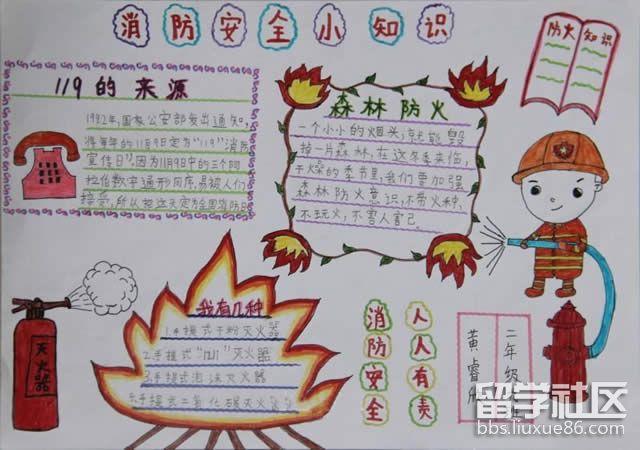 消防安全小知识
防火知识
119的来源
1992年,国家公安部发出通知,
将每年的11月9日定为“119”消防
宣传日”,因为11月9日中的三个阿
拉伯数字通形同序,易被人们
接受,所以把这天定为全国消防日
森林防火
一个小小的烟头,就能毁
掉一片森林,在这冬季来临,
干燥的季节里,我们要加强
森林防火意识,不带火种、
不玩火,不害人害己.
我有几种
1.手提式干粉灭火器
2.手提式“1211”灭火器
3.手提式泡沫灭火器
4.手提式二氧化碳灭火器
灭火器
消防安全
人人有责
二年级
黄睿
留学社区
bbs.liuxue86.com